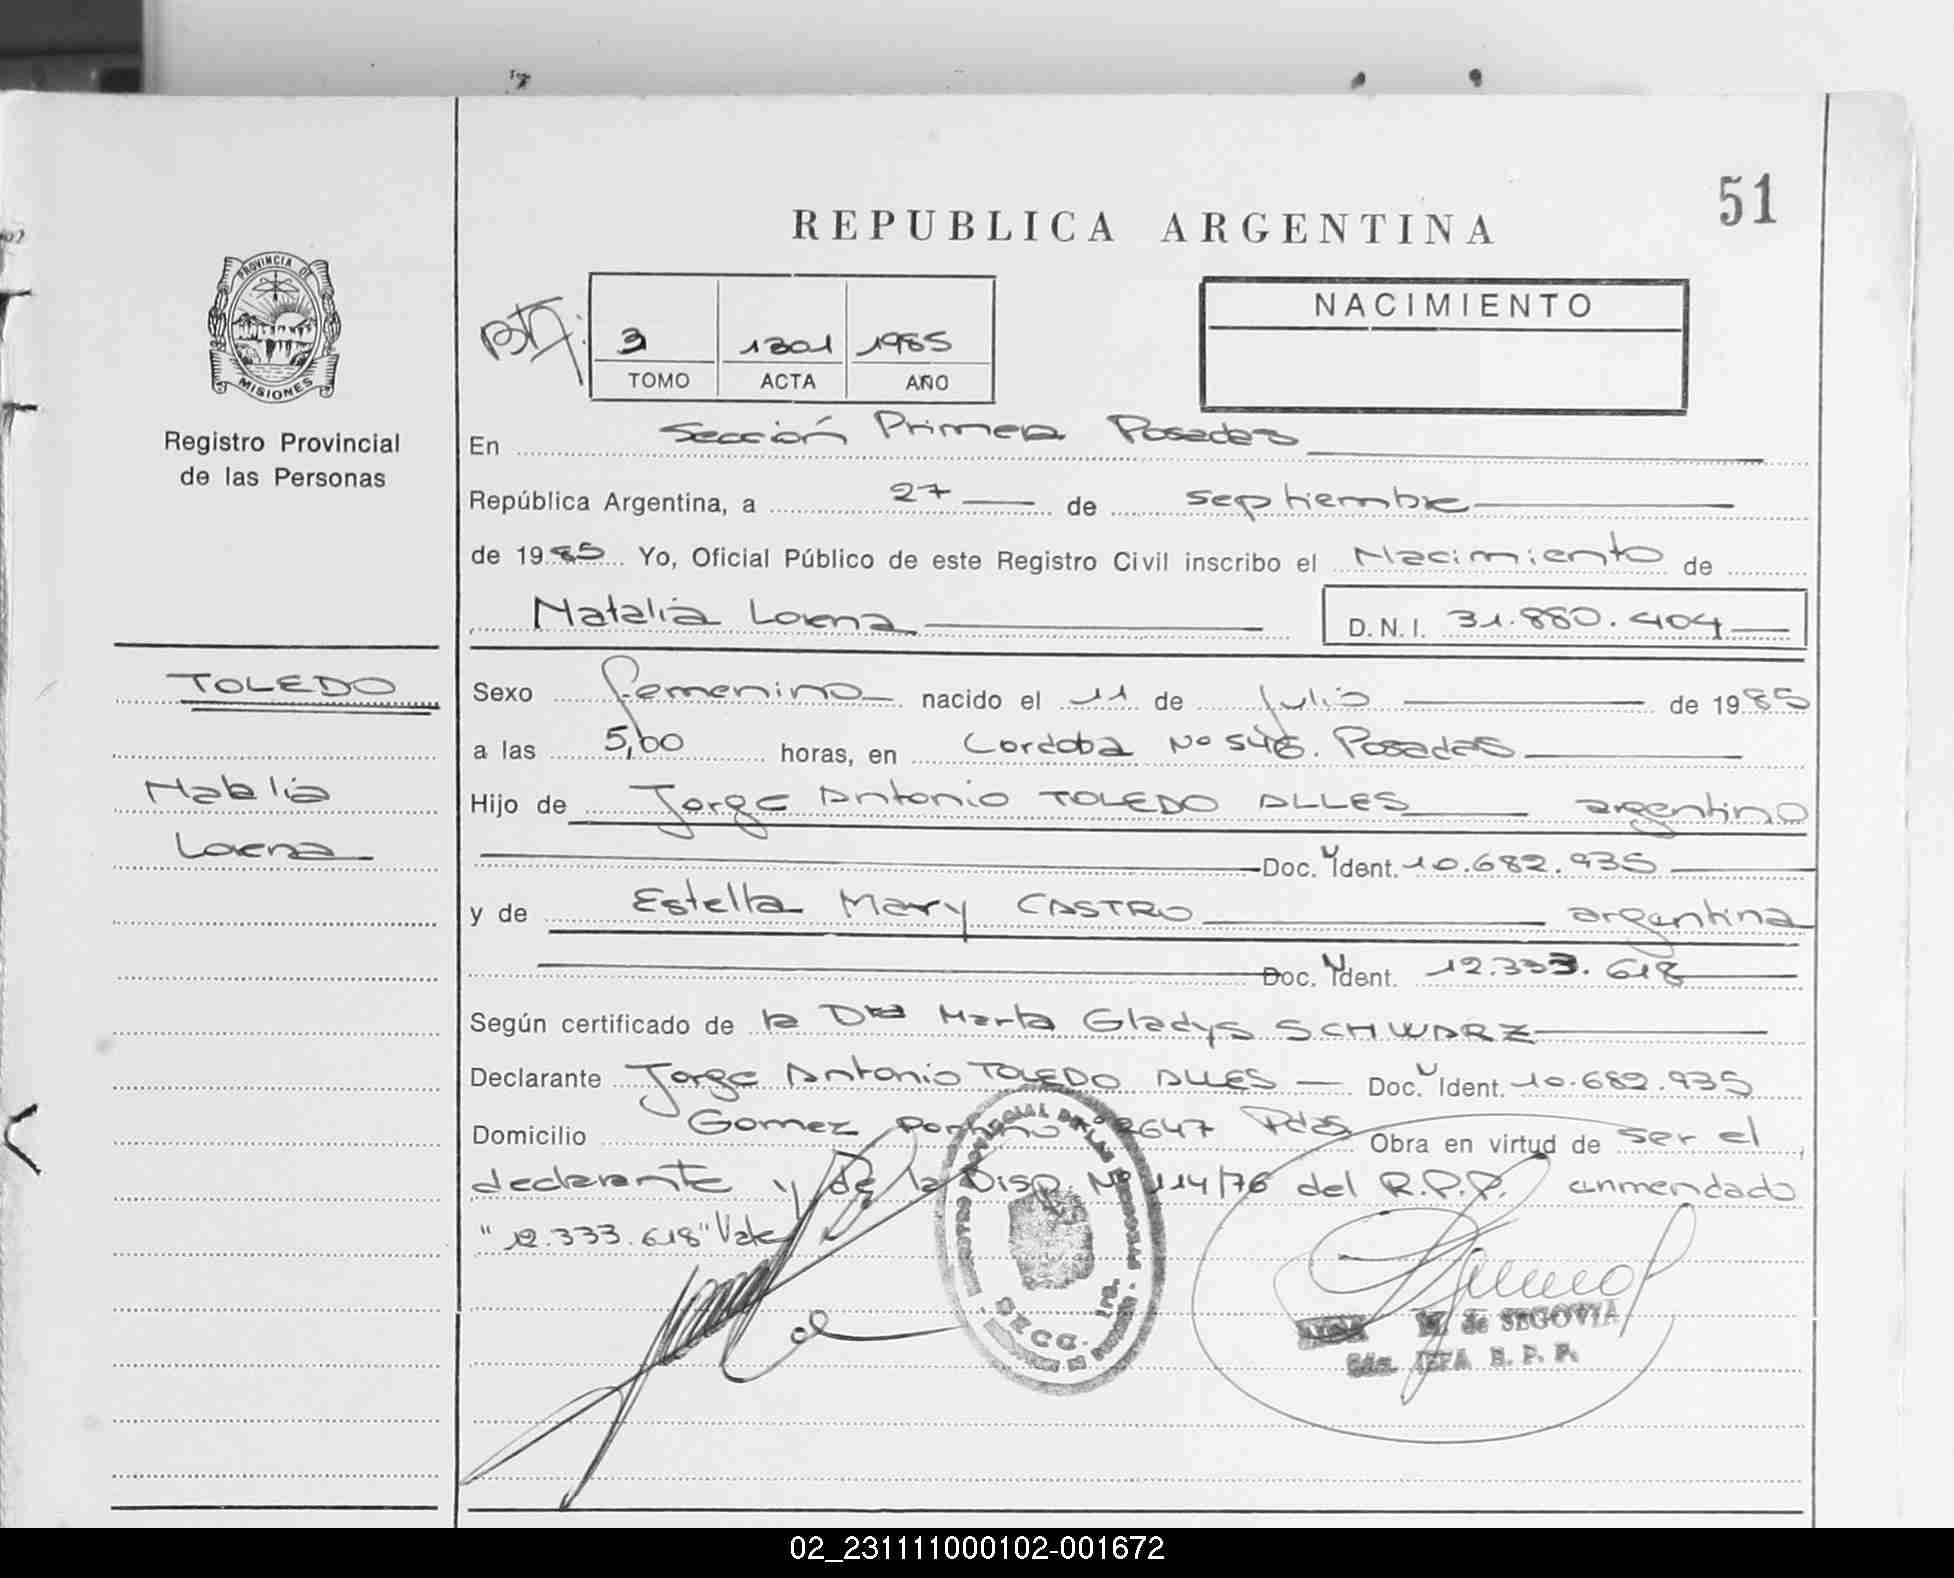 51
REPUBLICA ARGENTINA
PROVINCIA DE
MISIONES
Registro Provincial
de las Personas
NACIMIENTO
3 1301 1985
TOMO ACTA AÑO
En Sección Primera Posadas
República Argentina, a 27 de septiembre
de 1985 Yo, Oficial Público de este Registro Civil inscribo el Nacimiento de
Natalia Lorena D.N.I. 31.880.404
TOLEDO
Natalia
Lorena
Sexo femenino nacido el 11 de julio de 1985
a las 5,00 horas, en Cordoba Nº 546. Posadas
Hijo de Jorge Antonio TOLEDO ALLES argentino
Doc. Ident. 10.682.935
y de Estella Mary CASTRO argentina
Doc. Ident. 12.333.618
Según certificado de la Dra Marta Gladys SCHWARZ
Declarante Jorge Antonio TOLEDO ALLES Doc. Ident. 10.682.935
Domicilio Gomez Portiño 2647 Pdas Obra en virtud de ser el
declarante y de la Disp. Nº 114/76 del R.P.P. enmendado
"12.333.618" Vale
SECC. 1ra.
M. de SEGOVIA
JEFA R. P. P.
02_231111000102-001672